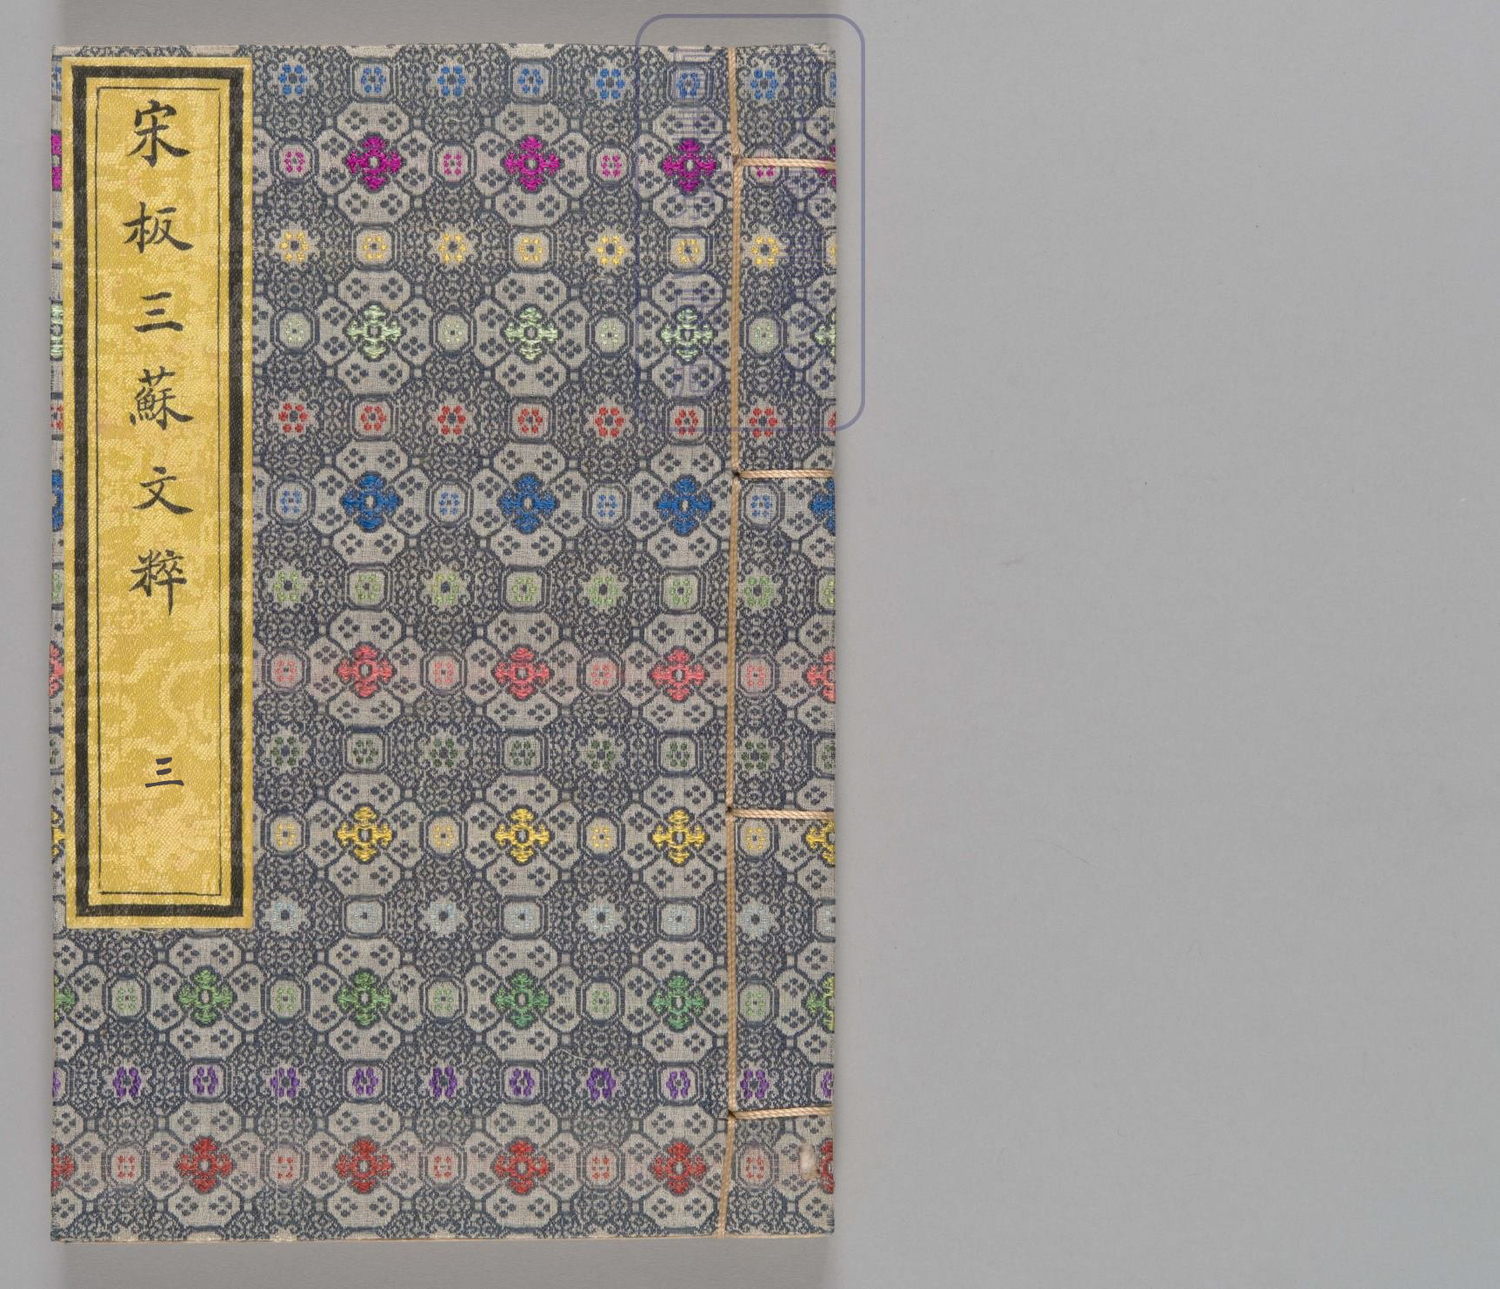 宋板三蘇文粹 三